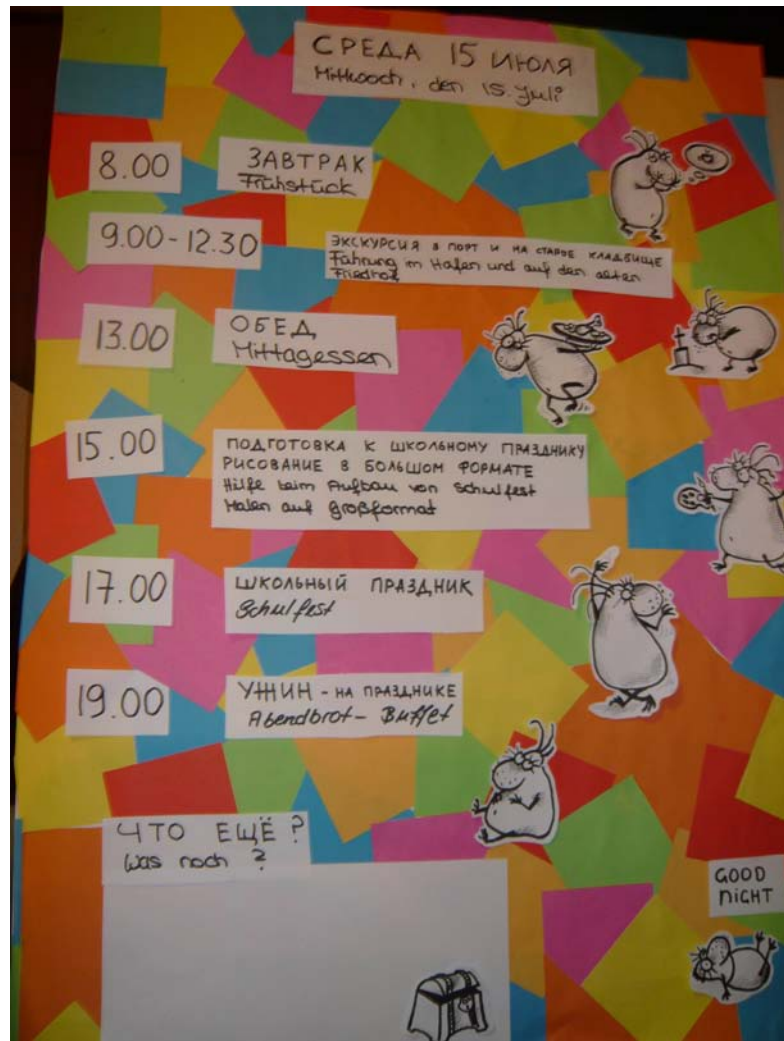 СРЕДА 15 ИЮЛЯ
Mittwoch, den 15. Juli
8.00
ЗАВТРАК
Frühstück
9.00-12.30
ЭКСКУРСИЯ В ПОРТ И НА СТАРОЕ КЛАДБИЩЕ
Fahrung im Hafen und auf den alten
Friedhof
13.00
ОБЕД
Mittagessen
15.00
ПОДГОТОВКА К ШКОЛЬНОМУ ПРАЗДНИКУ
РИСОВАНИЕ В БОЛЬШОМ ФОРМАТЕ
Hilfe beim Aufbau von Schulfest
Malen auf Großformat
17.00
ШКОЛЬНЫЙ ПРАЗДНИК
Schulfest
19.00
УЖИН - НА ПРАЗДНИКЕ
Abendbrot - Buffet
ЧТО ЕЩЁ?
Was noch?
GOOD
NIGHT